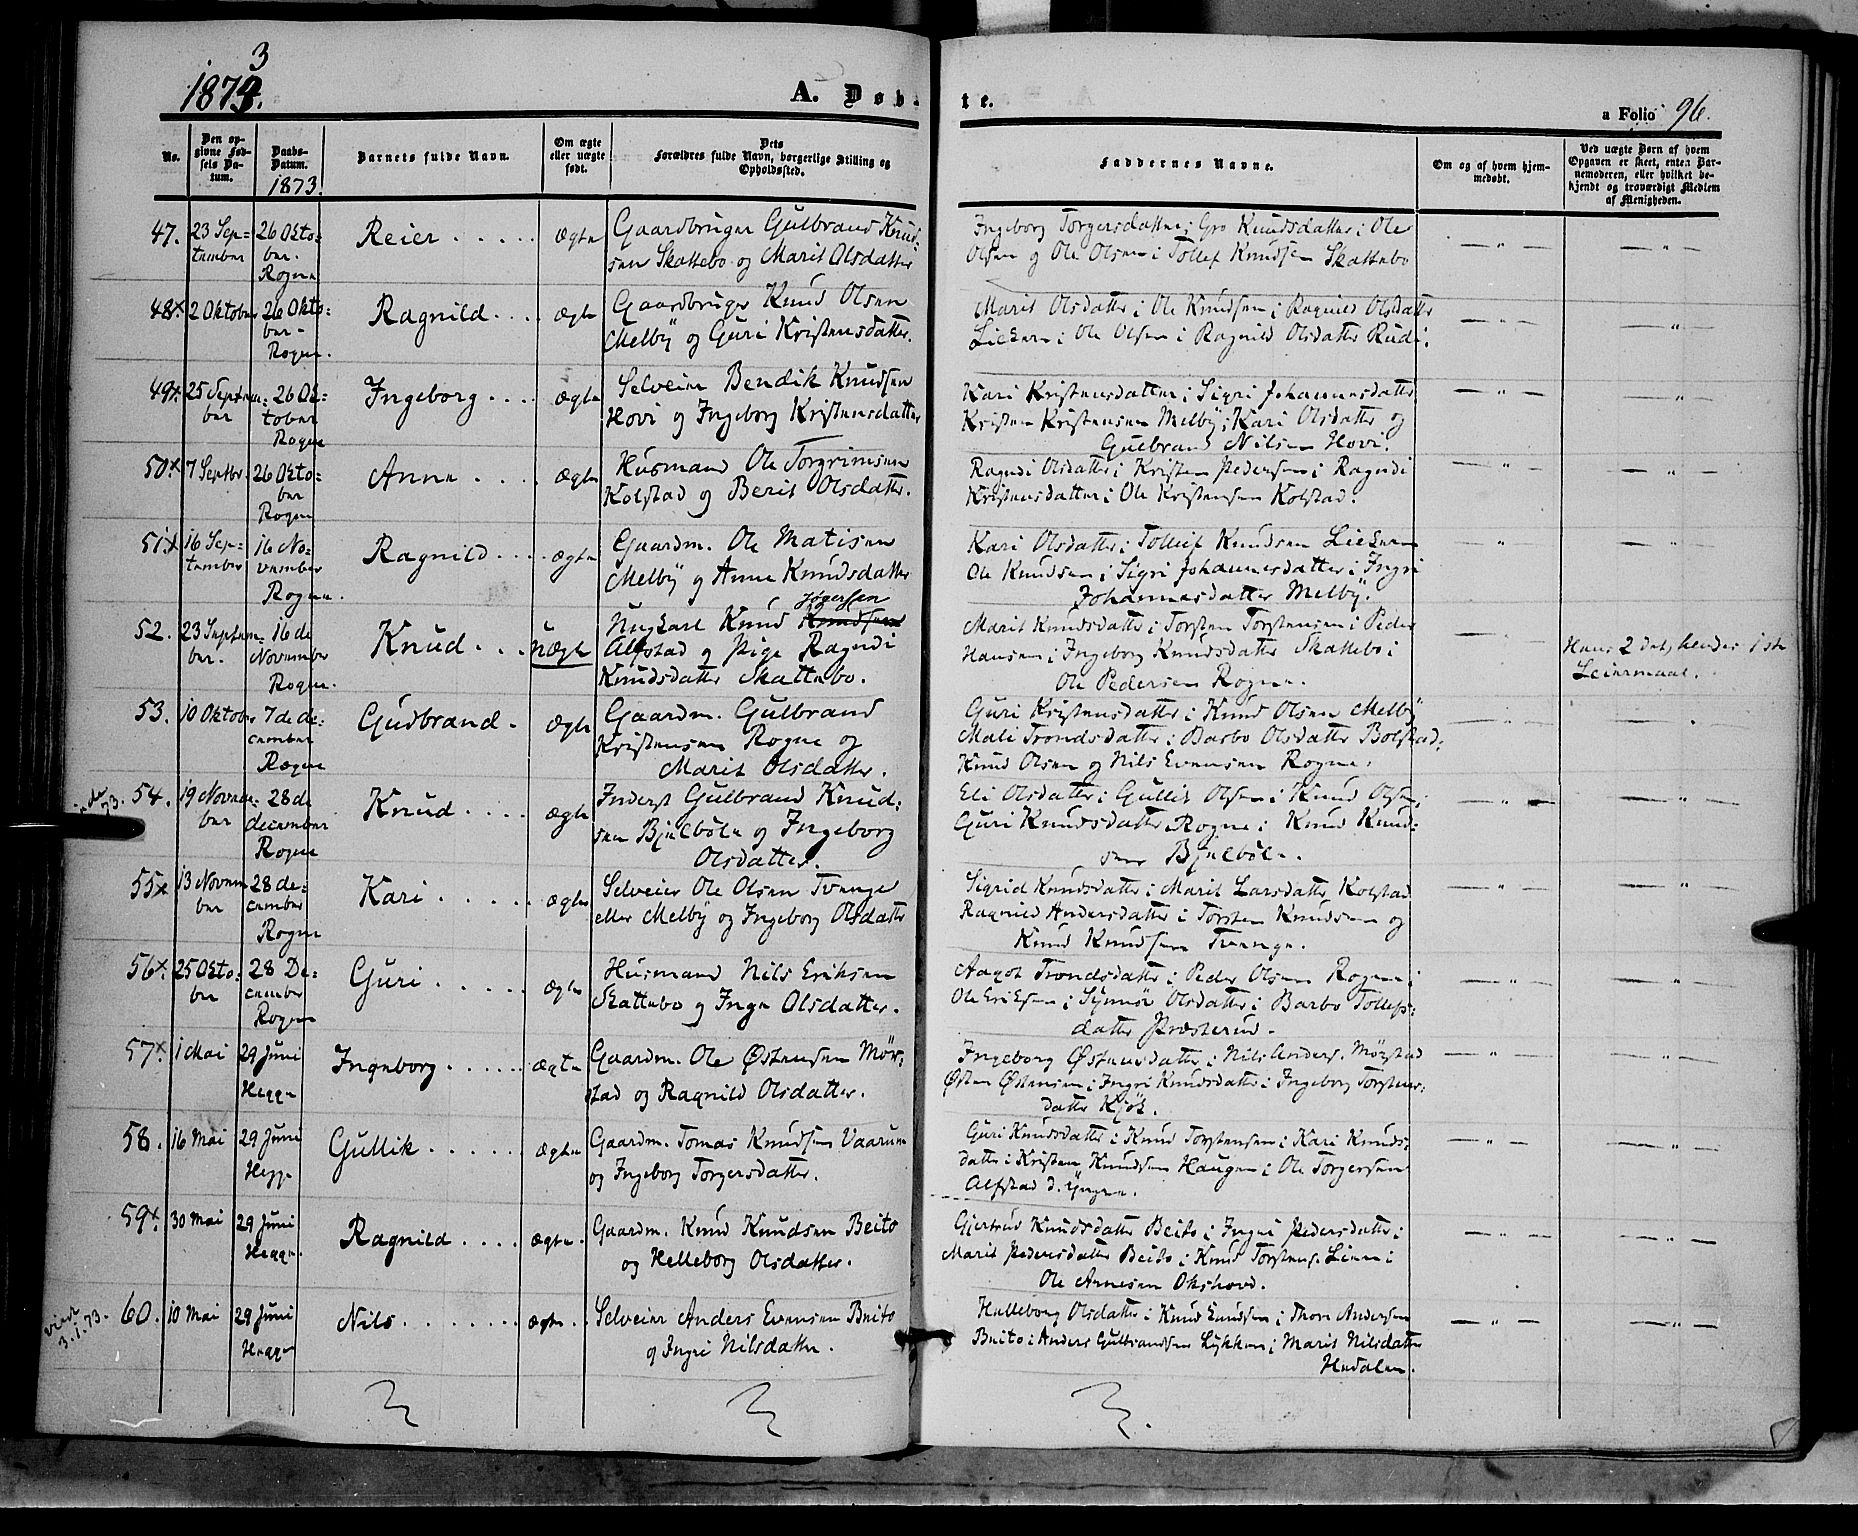 3
1874.
A. Døb
te.
a Folio 96.
No.
Den op-
givne Fød-
sels Da-
tum.
Daabs-
Datum.
1873.
Barnets fulde Navn.
Om ægte
eller uægte
født.
Dets
Forældres fulde Navn, borgerlige Stilling og
Opholdssted.
Faddernes Navne.
Om og af hvem hjem-
medøbt.
Ved uægte Børn af hvem
Opgaven er skeet, enten Bar-
nemoderen, eller hvilket be-
kjendt og troværdigt Medlem
af Menigheden.
47. 23 Sep- 26 Okto- Reier ægte Gaardbruger Gulbrand Knud- Ingeborg Torgersdatter; Gro Knudsdatter; Ole
tember ber. sen Skattebo og Marit Olsdatter Olsen og Ole Olsen; Tollef Knudsen Skattebo
Rogne
48x 2 Oktober 26 Okto- Ragnild ægte Gaardbruger Knud Olsen Marit Olsdatter; Ole Knudsen; Ragnild Olsdatter
ber Melby og Guri Kristensdatter. Ole Olsen; Ragnild Olsdatter Rudi.
Rogne.
49x. 25 Septem- 26 Ok- Ingeborg ægte Selveier Bendik Knudsen Kari Kristensdatter; Sigri Johannesdatter
ber tober Hovi og Ingeborg Kristensdatter Kristen Kristensen Melby; Kari Olsdatter og
Rogne Gulbrand Nilsen Hovi.
50x 7 Septbr. 26 Okto- Anne ægte Husmand Ole Torgrimsen Ragndi Olsdatter; Kristen Pedersen; Ragndi
ber Kolstad og Berit Olsdatter. Kristensdatter; Ole Kristensen Kolstad.
Rogne
51x 16 Sep- 16 No- Ragnild ægte Gaardm. Ole Matisen Kari Olsdatter; Tollef Knudsen
tember vember Melby og Anne Knudsdatter Ole Knudsen; Sigri Johannesdatter; Ingri
Rogne. Johannesdatter Melby.
Jøgersen
52. 23 Septem- 16 de Knud uægte Ungkarl Knud Knudsen Marit Knudsdatter; Torsten Torstensen; Peder
ber. November Alfstad og Pige Ragndi Hansen; Ingeborg Knudsdatter Skattebo; Hans 2det, hendes 1ste
Rogne. Knudsdatter Skattebo. Ole Pedersen Rogne. Leiermaal.
53. 10 Oktober 7 de de- Gudbrand ægte Gaardm. Gulbrand Guri Kristensdatter; Knud Olsen Melby
cember Kristensen Rogne og Mali Trondsdatter; Barbo Olsdatter Bolstad;
Rogne Marit Olsdatter. Knud Olsen og Nils Evensen Rogne.
73. 54. 19 Novem- 28 de Knud ægte Inderst Gulbrand Knud- Eli Olsdatter; Gullik Olsen; Knud Olsen;
ber december sen Bjelbøle og Ingeborg Guri Knudsdatter Rogne; Knud Knud-
Rogne Olsdatter. sen Bjelbøle.
55x 13 Novem 28 de- Kari ægte Selveier Ole Olsen Tvenge Sigrid Knudsdatter; Marit Larsdatter Kolstad
ber cember eller Melby og Ingeborg Olsdatter Ragnild Andersdatter; Torsten Knudsen og
Rogne Knud Knudsen Tvenge.
56x. 25 Okto- 28 De- Guri ægte Husmand Nils Eriksen Aagot Trondsdatter; Peder Olsen Rogne;
ber cember Skattebo og Inge Olsdatter. Ole Eriksen; Synnøv Olsdatter; Barbo Tollefs-
Rogne datter Præsterud.
57x 1 Mai 29 Juni Ingeborg ægte Gaardm. Ole Østensen Mør- Ingeborg Østensdatter; Nils Anders. Mørstad
Hegge stad og Ragnild Olsdatter. Østen Østensen; Ingri Knudsdatter; Ingeborg Torstens-
datter Kjøk.
58. 16 Mai 29 Juni Gullik ægte Gaardm. Tomas Knudsen Vaarum Guri Knudsdatter; Knud Torstensen; Kari Knuds-
Hegge og Ingeborg Torgersdatter. datter; Kristen Knudsen Haugen; Ole Torgersen
Alfstad d. yngre.
59x. 30 Mai 29 Juni Ragnild ægte Gaardm. Knud Knudsen Beito Gjertrud Knudsdatter Beito; Ingri Pedersdatter;
Hegge og Helleborg Olsdatter. Marit Pedersdatter Beito; Knud Torstens. Lien;
Ole Arnesen Okshovd.
viede
3.1.73. 60. 10 Mai 29 Juni Nils ægte Selveier Anders Evensen Beito Helleborg Olsdatter; Knud Knudsen; Thore Andersen
Hegge og Ingri Nilsdatter. Beito; Anders Gulbrandsen Lykken; Marit Nilsdatter
Hedalen.